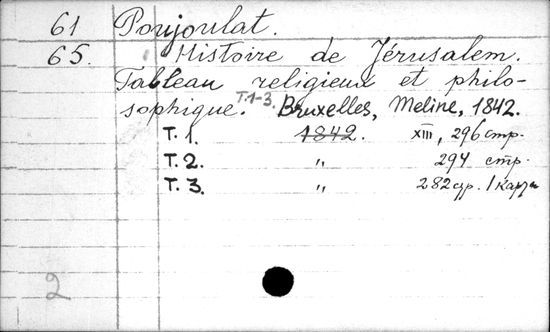 61 Poujoulat.
65. Histoire de Jérusalem.
Tableau religieux et philo-
sophique. T.1-3. Bruxelles, Meline, 1842.
T. 1. 1842. XIII, 296 стр.
T. 2. " 294 стр.
T. 3. " 282 стр. 1 карта
2